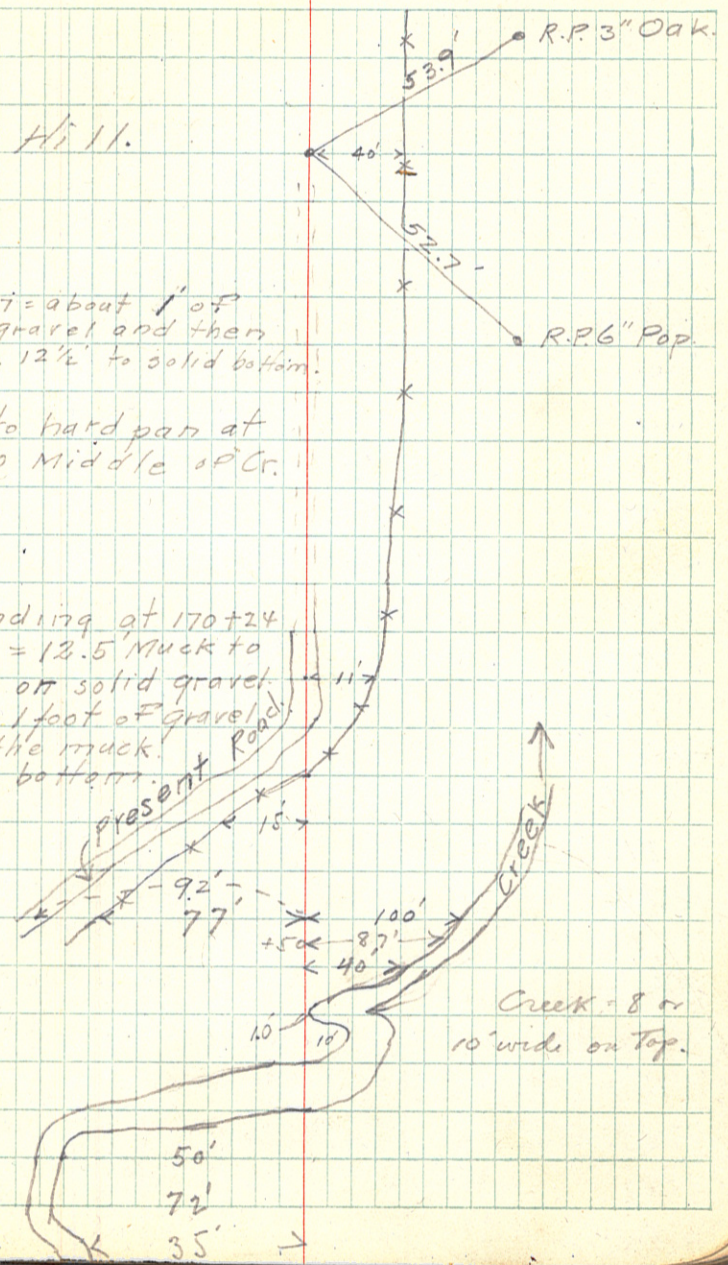 R.P. 3" Oak.
53.9'
Hill.
40'
52.7'
= about 1' of
gravel and then
12½' to solid bottom.
R.P. 6" Pop.
to hard pan at
Middle of Cr.
nding at 170+24
= 12.5' Muck to
on solid gravel.
1 foot of gravel
the muck.
bottom.
11'
Present Road
15'
92'
77'
100'
+50
87'
40'
Creek
Creek - 8 or
10' wide on Top.
10'
10'
50'
72'
35'